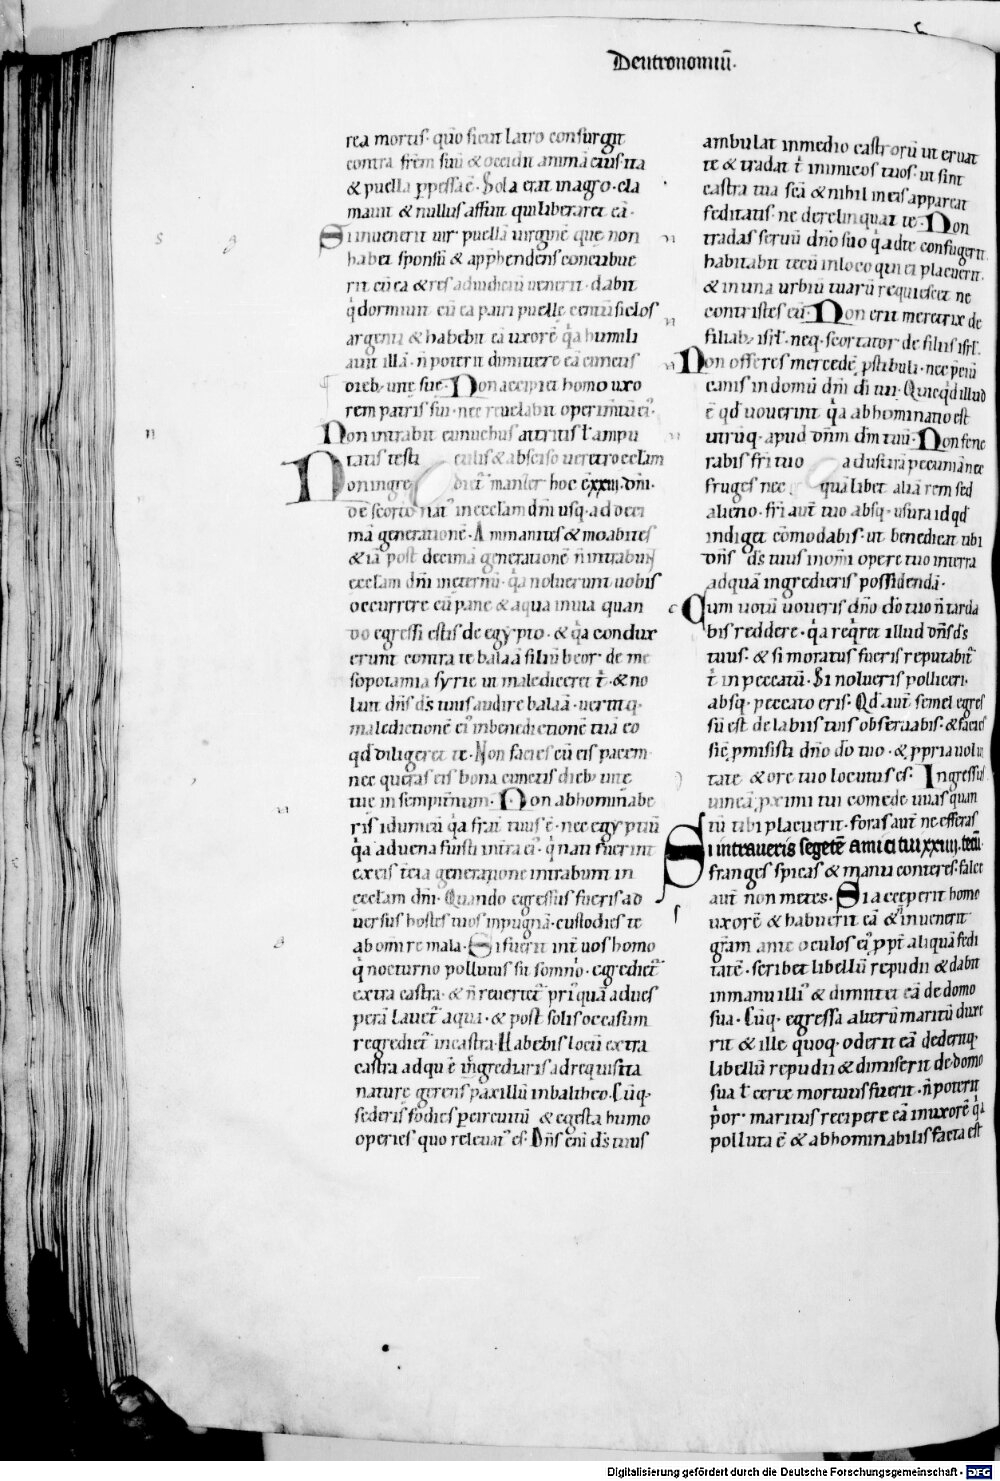 Deutronomiū.
rea mortis. quō sicut latro consurgit
contra frēm suū & occidit animā eius. ita
& puella ꝑpessa ē. Sola erat in agro. cla
mauit & nullus affuit qui liberaret eā.
Si inuenerit uir puellā uirginē que non
habet sponsū & app̄hendens concubue
rit cū ea & res ad iudiciū uenerit. dabit
q̇ dormiuit cū ea patri puelle centū siclos
argenti & habebit eā uxorē q̇a humili
auit illā. n̄ poterit dimittere eā cunctis
dieb; uite sue. Non accipiet homo uxo
rem patris sui. nec reuelabit operimtū eiꝰ.
Non intrabit eunuchus attritis ł ampu
tatis testi culis & absciso ueretro eccłam
Non ingre dietͬ manser hoc ē xxiii. dn̄i.
de scorto natꝰ in eccłam dn̄i usq. ad deci
mā generationē. Ammanites & moabites
& iā post decimā generationē n̄ intrabunt
eccłam dn̄i in eternū. q̇a noluerunt uobis
occurrere cū pane & aqua in uia quan
do egressi estis de egypto. & q̇a condux
erunt contra te balaā filiū beor de me
sopotamia syrie ut malediceret t̄. & no
luit dn̄s d̄s tuus audire balaā. uertitq.
maledictionē eiꝰ in benedictionē tuā eo
qd diligeret te. Non facies cū eis pacem
nec queras eis bona cunctis dieb; uite
tue in sempit̄num. Non abhominabe
ris idumeū q̇a frat̄ tuus ē. nec egyptiū
q̇a aduena fuisti in t̄ra eiꝰ. q̇ nati fuerint
ex eis t̄cia generatione intrabunt in
eccłam dn̄i. Quando egressus fueris ad
uersus hostes tuos in pugnā. custodies te
ab omī re mala. Si fuerit int̄ uos homo
q̇ nocturno pollutus sit somnꝰo. egredietͬ
extra castra. & n̄ reuertetͬ priꝰ quā ad ues
perā lauetͬ aqua. & post solis occasum
regredietͬ in castra. Habebis locū extra
castra ad quē ingrediaris ad requisita
nature gerens paxillū in baltheo. Cūq.
sederis fodies ꝑ circuitū & egesta humo
operies quo releuatꝰ es. Dn̄s enī d̄s tuus
ambulat in medio castrorū ut eruat
te & tradat t̄ inimicos tuos. ut sint
castra tua scā & nihil in eis appareat
feditatis. ne derelinquat te. Non
tradas seruū dn̄o suo q̇ ad te confugerit.
habitabit tecū in loco qui ei placuerit.
& in una urbiū tuarū requiescet ne
contristes eū. Non erit meretrix de
filiab; isrł. neq. scortator de filiis isrł.
Non offeres mercedē pstibuli. nec p̄ciū
canis in domū dn̄i di tui. Quicqd illud
ē qd uouerint q̇a abhominatio est
utrūq. apud dn̄m dm̄ tuū. Non fene
rabis fri tuo ad usurā pecuniā nec
fruges nec quālibet aliā rem sed
alieno. fri aut̄ tuo absq. usura id qd
indiget cōmodabis. ut benedicat tibi
dn̄s d̄s tuus in omī opere tuo in terra
ad quā ingredieris possidendā.
Cum uotū uoueris dn̄o do tuo n̄ tarda
bis reddere. q̇a reqret illud dn̄s d̄s
tuus. & si moratus fueris reputabitͬ
t̄ in peccatū. Si nolueris polliceri.
absq. peccato eris. Qd aut̄ semel egres
sū est de labiis tuis obseruabis. & facies
sic̄ pmisisti dn̄o do tuo. & ppria uolū
tate & ore tuo locutus es. Ingressus
uineā pximi tui comede uuas quan
tū tibi placuerit. foras aut̄ ne efferas
Si intraueris segetē amici tui xxiiii. tecū.
franges spicas & manu conteres. falce
aut̄ non metes. Si acceperit homo
uxorē & habuerit eā & n̄ inuenerit
grām ante oculos eiꝰ ppt̄ aliquā fedi
tatē. scribet libellū repudii & dabit
in manu illiꝰ & dimittet eā de domo
sua. Cūq. egressa alterū maritū duxe
rit & ille quoq. oderit eā dederitq.
libellū repudii & dimiserit de domo
sua ł certe mortuus fuerit. n̄ poterit
p̄or maritus recipere eā in uxorē q̇a
polluta ē & abhominabilis facta est
Digitalisierung gefördert durch die Deutsche Forschungsgemeinschaft - DFG